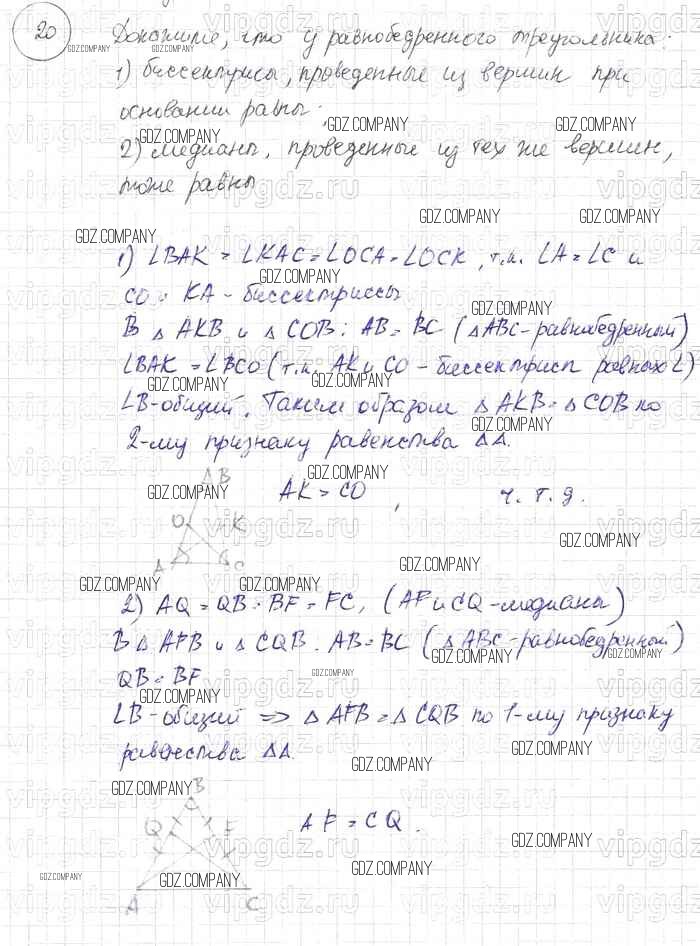 20
Докажите, что у равнобедренного треугольника:
1) биссектрисы, проведенные из вершин при
основании равны.
2) медианы, проведенные из тех же вершин,
тоже равны
1) ∠BAK = ∠KAC = ∠OCA = ∠OCK, т.к. ∠A = ∠C и
CO и KA - биссектриссы
В △ AKB и △ COB: AB = BC (△ABC - равнобедренный)
∠BAK = ∠BCO (т.к. AK и CO - биссектрисы равных ∠)
∠B - общий. Таким образом △ AKB = △ COB по
2-му признаку равенства △△.
AK = CO , ч.т.д.
B
O K
A C
2) AQ = QB = BF = FC, (AF и CQ - медианы)
В △ AFB и △ CQB. AB = BC (△ ABC - равнобедренный)
QB = BF
∠B - общий => △ AFB = △ CQB по 1-му признаку
равенства △△.
B
Q F
AF = CQ.
A C
GDZ.COMPANY
vipgdz.ru